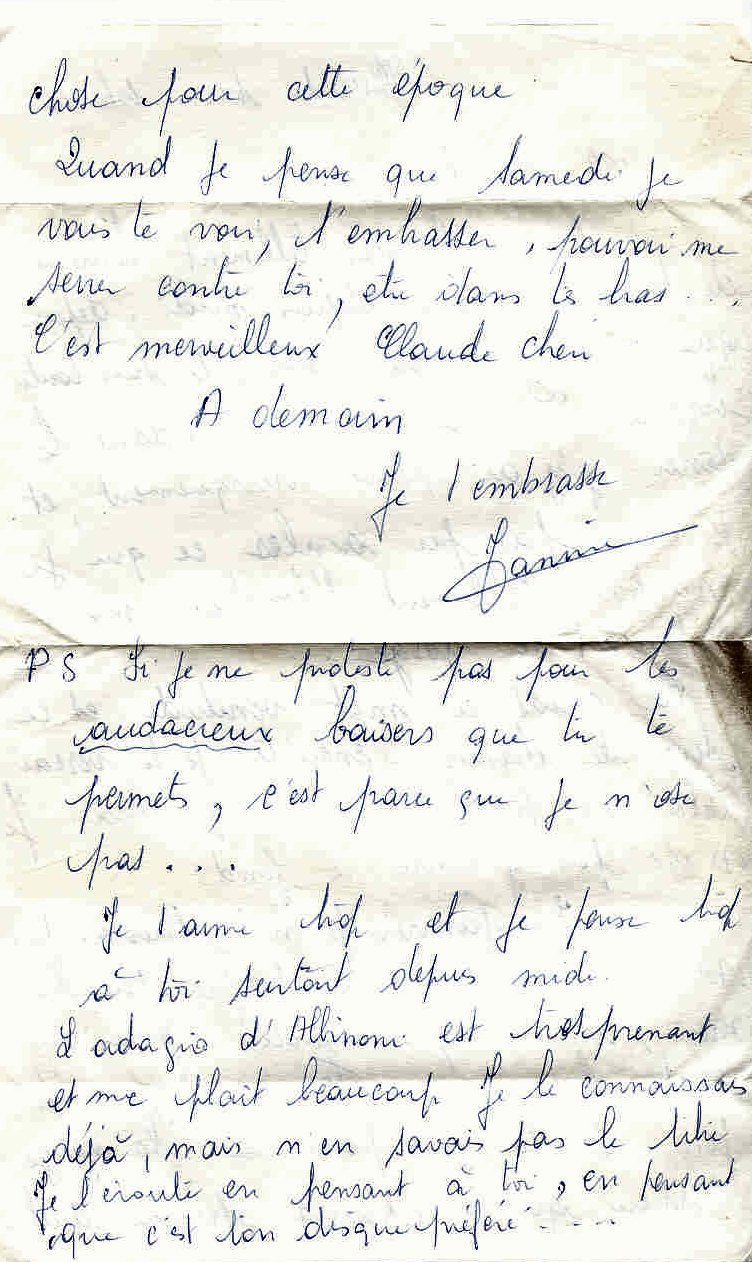 chose pour cette époque
Quand je pense que samedi je
vais te voir, t'embrasser, pouvoir me
serrer contre toi, être dans tes bras...
C'est merveilleux Claude chéri
A demain
Je t'embrasse
Jannine
PS Si je ne proteste pas pour les
audacieux baisers que tu te
permets, c'est parce que je n'ose
pas...
Je t'aime trop et je pense trop
à toi surtout depuis midi.
L'adagio d'Albinoni est très prenant
et me plait beaucoup Je le connaissais
déjà, mais n'en savais pas le titre
Je l'écoute en pensant à toi, en pensant
que c'est ton disque préféré....